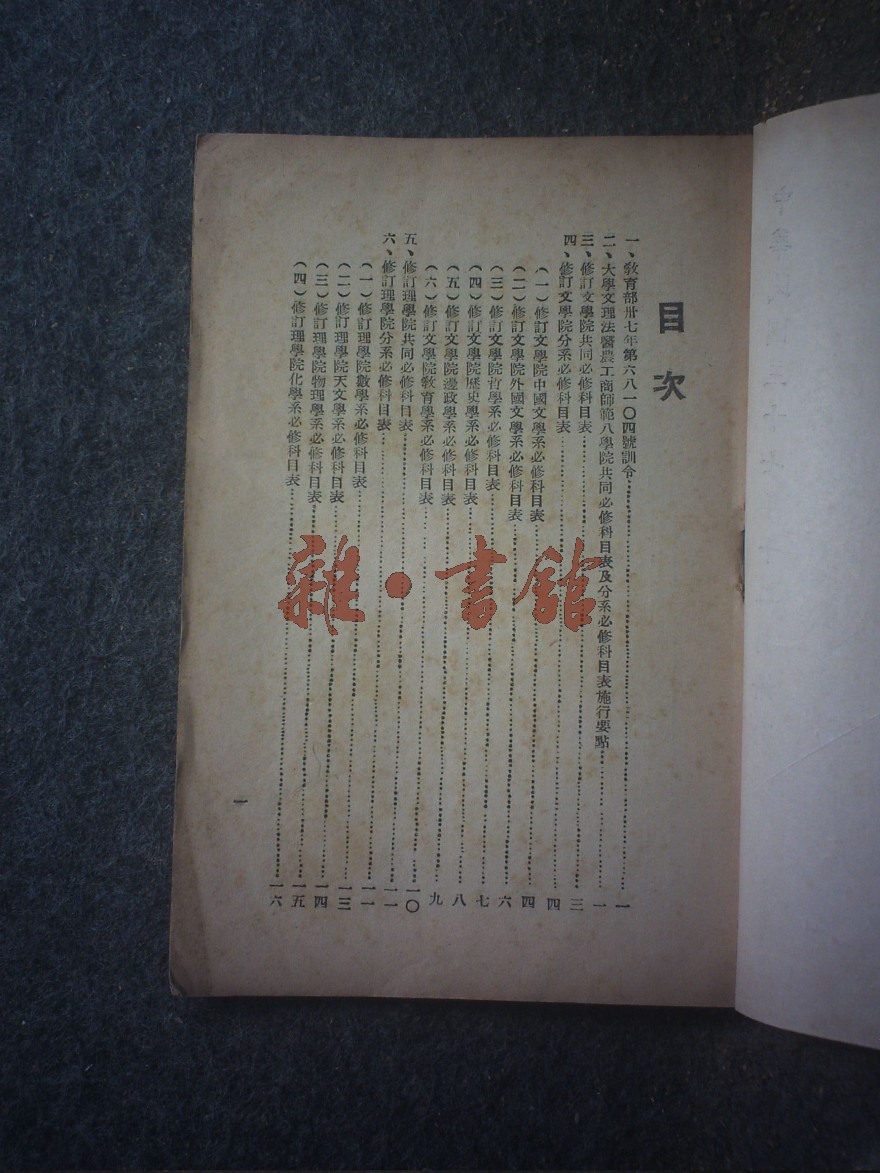 目次
一、教育部卅七年第六八一〇四號訓令……一
二、大學文理法醫農工商師範八學院共同必修科目表及分系必修科目表施行要點……一
三、修訂文學院共同必修科目表……三
四、修訂文學院分系必修科目表……四
(一)修訂文學院中國文學系必修科目表……四
(二)修訂文學院外國文學系必修科目表……六
(三)修訂文學院哲學系必修科目表……七
(四)修訂文學院歷史學系必修科目表……八
(五)修訂文學院邊政學系必修科目表……九
(六)修訂文學院教育學系必修科目表……一〇
五、修訂理學院共同必修科目表……一一
六、修訂理學院分系必修科目表……一一
(一)修訂理學院數學系必修科目表……一三
(二)修訂理學院天文學系必修科目表……一四
(三)修訂理學院物理學系必修科目表……一五
(四)修訂理學院化學系必修科目表……一六
一
雜·書館